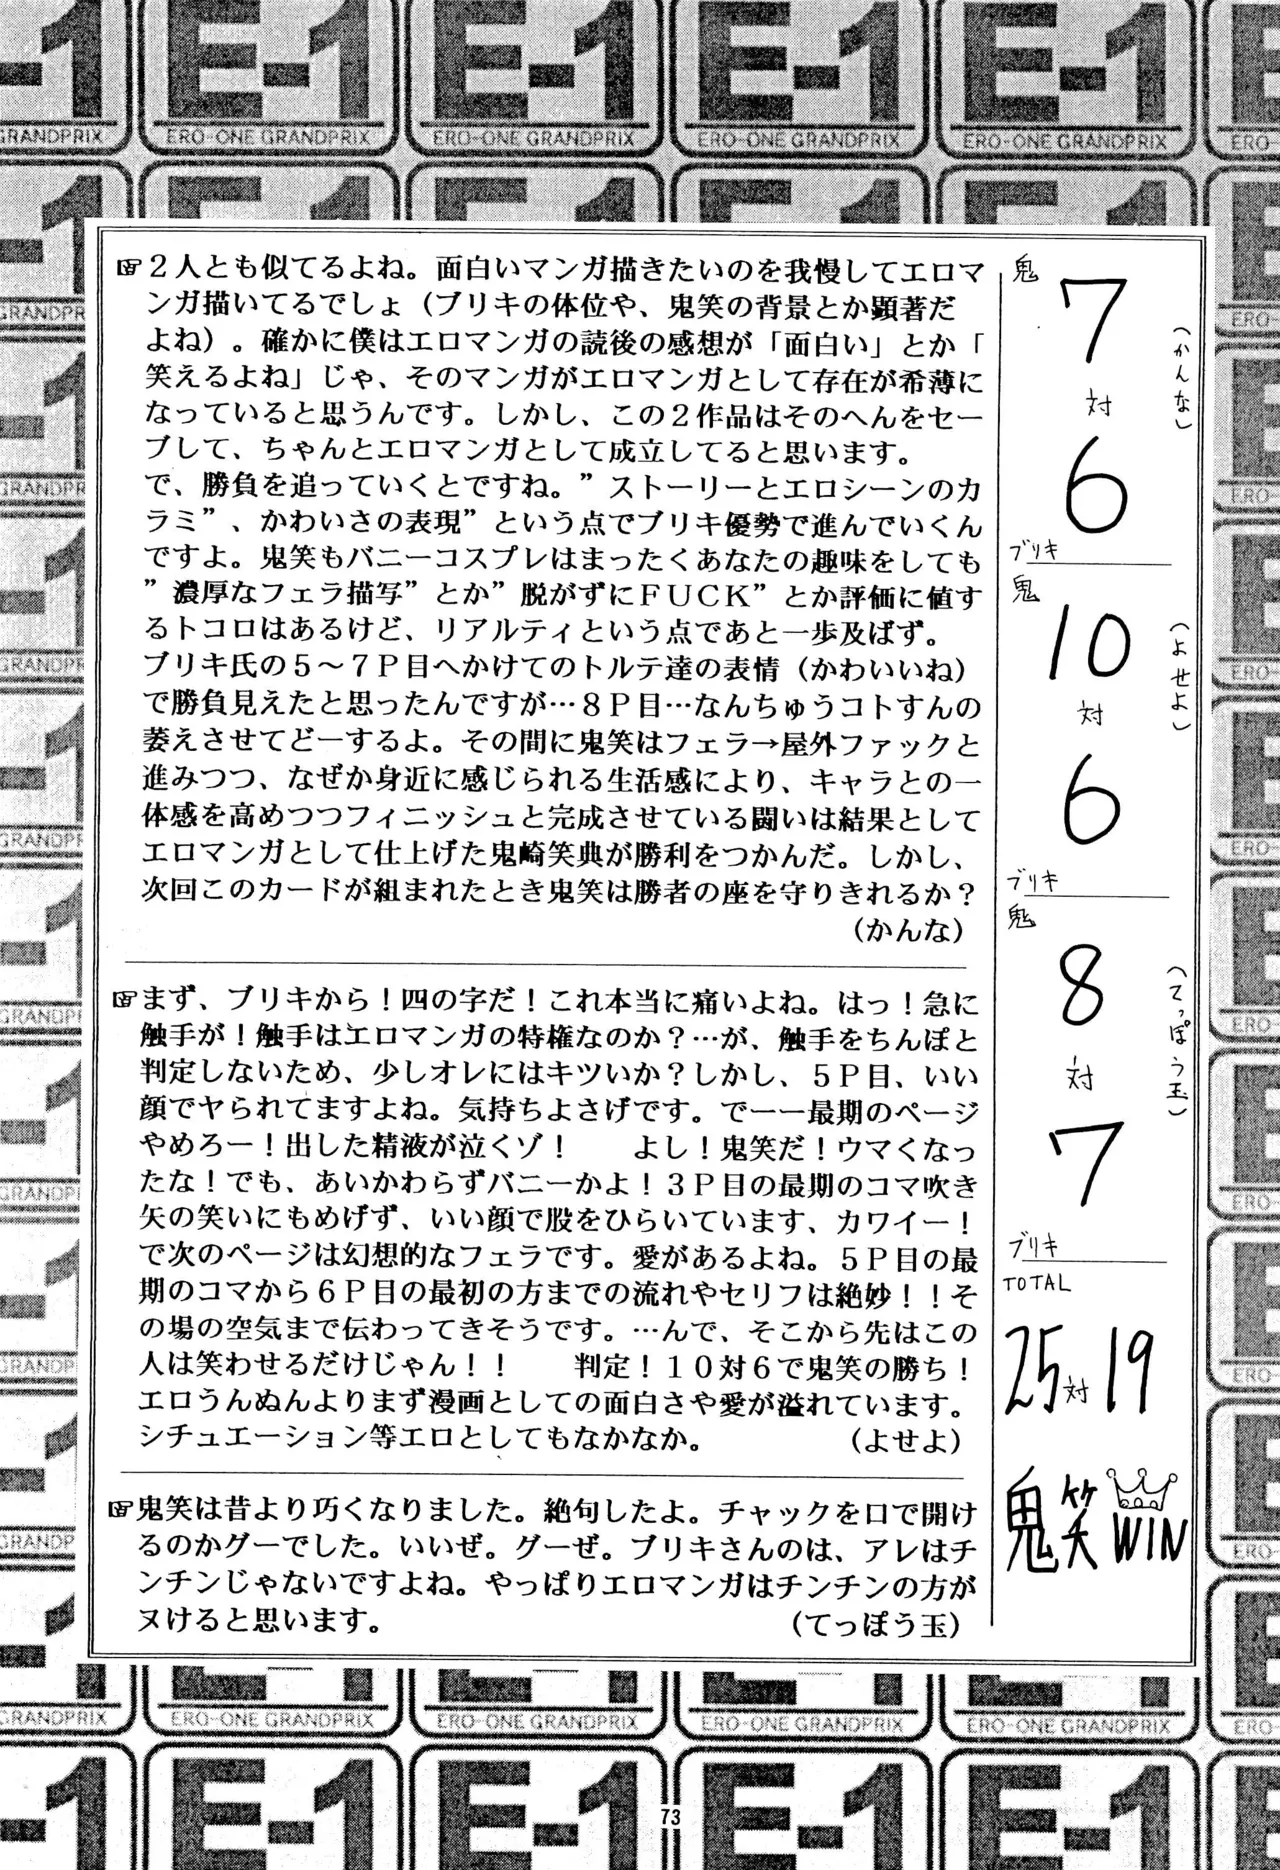 ☞２人とも似てるよね。面白いマンガ描きたいのを我慢してエロマ
ンガ描いてるでしょ（ブリキの体位や、鬼笑の背景とか顕著だ
よね）。確かに僕はエロマンガの読後の感想が「面白い」とか「
笑えるよね」じゃ、そのマンガがエロマンガとして存在が希薄に
なっていると思うんです。しかし、この２作品はそのへんをセー
ブして、ちゃんとエロマンガとして成立してると思います。
で、勝負を追っていくとですね。”ストーリーとエロシーンのカ
ラミ”、かわいさの表現”という点でブリキ優勢で進んでいくん
ですよ。鬼笑もバニーコスプレはまったくあなたの趣味をしても
”濃厚なフェラ描写”とか”脱がずにＦＵＣＫ”とか評価に値す
るトコロはあるけど、リアルティという点であと一歩及ばず。
ブリキ氏の５～７Ｐ目へかけてのトルテ達の表情（かわいいね）
で勝負見えたと思ったんですが…８Ｐ目…なんちゅうコトすんの
萎えさせてどーするよ。その間に鬼笑はフェラ→屋外ファックと
進みつつ、なぜか身近に感じられる生活感により、キャラとの一
体感を高めつつフィニッシュと完成させている闘いは結果として
エロマンガとして仕上げた鬼崎笑典が勝利をつかんだ。しかし、
次回このカードが組まれたとき鬼笑は勝者の座を守りきれるか？
（かんな）
☞まず、ブリキから！四の字だ！これ本当に痛いよね。はっ！急に
触手が！触手はエロマンガの特権なのか？…が、触手をちんぽと
判定しないため、少しオレにはキツいか？しかし、５Ｐ目、いい
顔でヤられてますよね。気持ちよさげです。でーー最期のページ
やめろー！出した精液が泣くゾ！　　よし！鬼笑だ！ウマくなっ
たな！でも、あいかわらずバニーかよ！３Ｐ目の最期のコマ吹き
矢の笑いにもめげず、いい顔で股をひらいています、カワイー！
で次のページは幻想的なフェラです。愛があるよね。５Ｐ目の最
期のコマから６Ｐ目の最初の方までの流れやセリフは絶妙！！そ
の場の空気まで伝わってきそうです。…んで、そこから先はこの
人は笑わせるだけじゃん！！　　判定！１０対６で鬼笑の勝ち！
エロうんぬんよりまず漫画としての面白さや愛が溢れています。
シチュエーション等エロとしてもなかなか。　　　（よせよ）
☞鬼笑は昔より巧くなりました。絶句したよ。チャックを口で開け
るのかグーでした。いいぜ。グーぜ。ブリキさんのは、アレはチ
ンチンじゃないですよね。やっぱりエロマンガはチンチンの方が
ヌけると思います。　　　　　　　　　　　　　（てっぽう玉）
鬼
7
対
6
ブリキ
（かんな）
鬼
10
対
6
ブリキ
（よせよ）
鬼
8
対
7
ブリキ
（てっぽう玉）
TOTAL
25対19
鬼笑WIN
E-1
ERO-ONE GRANDPRIX
73